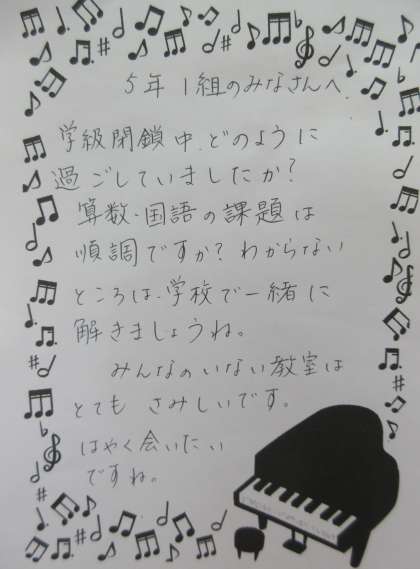 5年1組のみなさんへ
学級閉鎖中、どのように
過ごしていましたか?
算数・国語の課題は
順調ですか?わからない
ところは、学校で一緒に
解きましょうね。
みんなのいない教室は
とても さみしいです。
はやく会いたい
ですね。